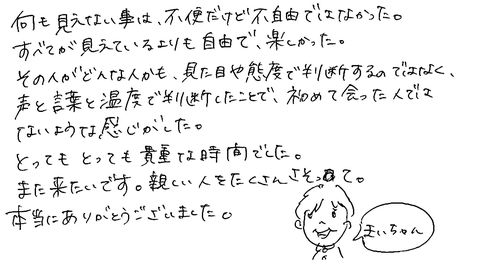 何も見えない事は、不便だけど不自由ではなかった。
すべてが見えているよりも自由で、楽しかった。
その人がどんな人かも、見た目や態度で判断するのではなく、
声と言葉と温度で判断したことで、初めて会った人では
ないような感じがした。
とってもとっても貴重な時間でした。
また来たいです。親しい人をたくさんさそって。
本当にありがとうございました。
まいちゃん